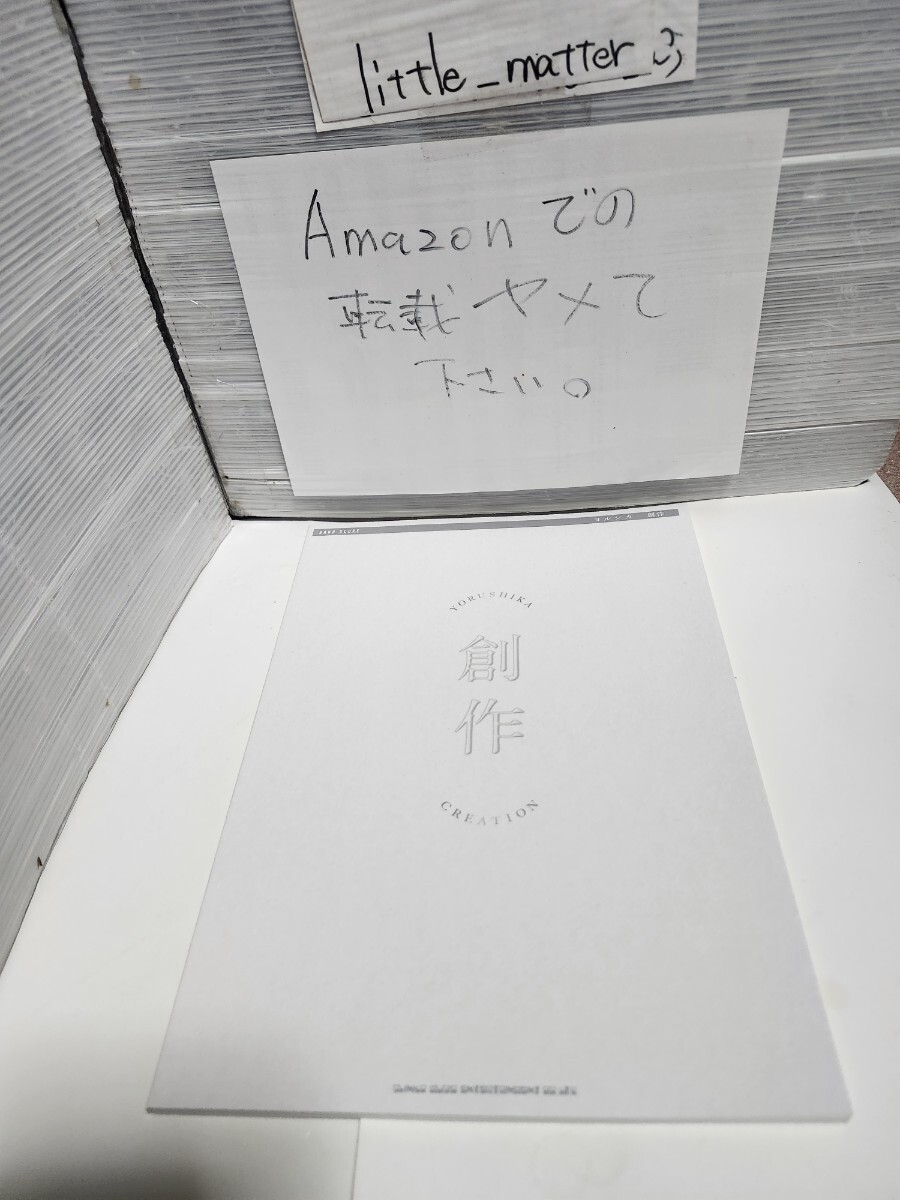 little_matter_
Amazonでの
転載ヤメて
下さい。
BAND SCORE
ヨルシカ 創作
YORUSHIKA
創
作
CREATION